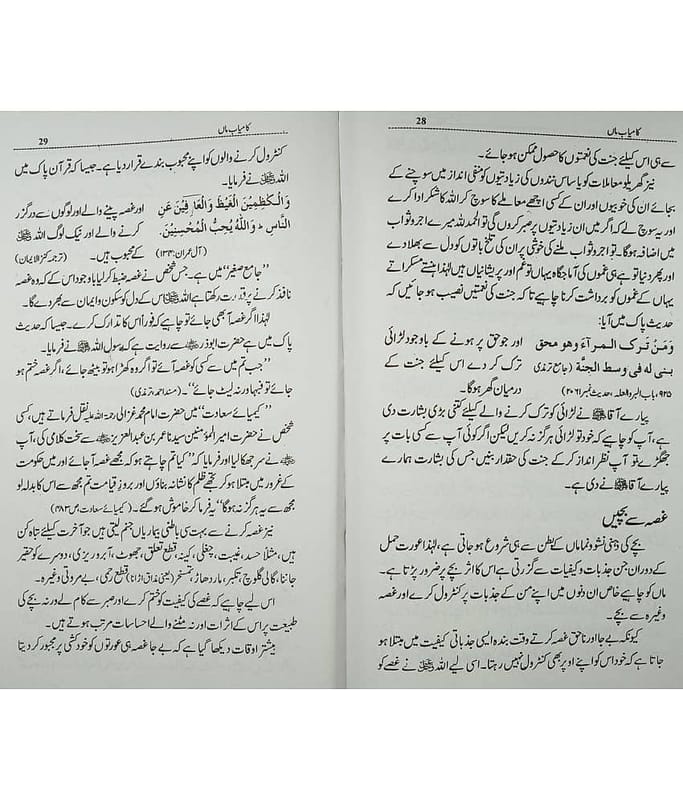 28
کامیاب ماں
سے ہی اس کیلئے جنت کی نعمتوں کا حصول ممکن ہو جائے۔
نیز گھریلو معاملات کو یا ساس نندوں کی زیادتیوں کو منفی انداز میں سوچنے کے
بجائے ان کی خوبیوں اور ان کے کسی اچھے معاملے کا سوچ کر اللہ کا شکر ادا کرے
اور یہ سوچ لے کہ اگر میں ان زیادتیوں پر صبر کروں گی تو الحمد للہ میرے اجر و ثواب
میں اضافہ ہوگا۔ تو اجر و ثواب ملنے کی خوشی پر ان کی تلخ باتوں کو دل سے بھلا دے
اور پھر دنیا تو ہے ہی غموں کی آماجگاہ یہاں تو غم اور پریشانیاں ہیں لہٰذا ہنستے مسکراتے
یہاں کے غموں کو برداشت کرنا چاہیے تا کہ جنت کی نعمتیں نصیب ہو جائیں کہ
حدیث پاک میں آیا:
ومن ترک المرآء وهو محق اور جو حق پر ہونے کے باوجود لڑائی
بنی له فی وسط الجنة (جامع ترمذی ترک کر دے اس کیلئے جنت کے
درمیان گھر ہوگا۔
پیارے آقا ﷺ نے لڑائی کو ترک کرنے والے کیلئے کتنی بڑی بشارت دی
ہے، آپ کو چاہیے کہ خود تو لڑائی ہرگز نہ کریں لیکن اگر کوئی آپ سے کسی بات پر
جھگڑے تو آپ نظر انداز کر کے جنت کی حقدار بنیں جس کی بشارت ہمارے
پیارے آقا ﷺ نے دی ہے۔
غصہ سے بچیں
بچے کی ذہنی نشوونما ماں کے بطن سے ہی شروع ہو جاتی ہے، لہٰذا عورت حمل
کے دوران جن جذبات و کیفیات سے گزرتی ہے اس کا اثر بچے پر ضرور پڑتا ہے۔
ماں کو چاہیے خاص ان دنوں میں اپنے من کے جذبات پر کنٹرول کرے اور غصہ
وغیرہ سے بچے۔
کیونکہ بے جا اور ناحق غصہ کرتے وقت بندہ ایسی جذباتی کیفیت میں مبتلا ہو
جاتا ہے کہ خود اس کو اپنے اوپر بھی کنٹرول نہیں رہتا۔ اسی لیے اللہ نے غصے کو
29
کامیاب ماں
کنٹرول کرنے والوں کو اپنے محبوب بندے قرار دیا ہے۔ جیسا کہ قرآن پاک میں
اللہ نے فرمایا۔
وَالْكٰظِمِيْنَ الْغَيْظَ وَالْعَافِيْنَ عَنِ اور غصہ پینے والے اور لوگوں سے درگزر
النَّاسِ ؕ وَاللّٰهُ يُحِبُّ الْمُحْسِنِيْنَ۔ کرنے والے اور نیک لوگ اللہ
(آل عمران:۱۳۴) کے محبوب ہیں۔ (ترجمہ کنزالایمان)
”جامع صغیر“ میں ہے۔ جس شخص نے غصہ ضبط کر لیا باوجود اس کے کہ وہ غصہ
نافذ کرنے پر قدرت رکھتا ہے اللہ اس کے دل کو سکون و ایمان سے بھر دے گا۔
لہٰذا اگر غصہ آ بھی جائے تو چاہیے کہ فوراً اس کا تدارک کرے۔ جیسا کہ حدیث
پاک میں ہے حضرت ابوذر سے روایت ہے رسول اللہ ﷺ نے فرمایا۔
”جب تم میں سے کسی کو غصہ آئے تو اگر وہ کھڑا ہو تو بیٹھ جائے، اگر غصہ ختم ہو
جائے تو فبہا ورنہ لیٹ جائے“۔ (مسند احمد، ترمذی)
”کیمیائے سعادت“ میں حضرت امام محمد غزالی رحمۃ اللہ علیہ نقل فرماتے ہیں، کسی
شخص نے حضرت امیر المؤمنین سیدنا عمر بن عبدالعزیز سے سخت کلامی کی، آپ
نے سر جھکا لیا اور فرمایا کہ ”کیا تم چاہتے ہو کہ مجھے غصہ آ جائے اور میں حکومت
کے غرور میں مبتلا ہو کر تجھے ظلم کا نشانہ بناؤں اور بروز قیامت تم مجھ سے اس کا بدلہ لو
مجھ سے یہ ہرگز نہ ہوگا“ یہ فرما کر خاموش ہو گئے۔ (کیمیائے سعادت
نیز غصہ کرنے سے بہت سی باطنی بیماریاں جنم لیتی ہیں جو آخرت کیلئے تباہ کن
ہیں، مثلاً حسد، غیبت، چغلی، کینہ، قطع تعلق، جھوٹ، آبروریزی، دوسرے کو حقیر
جاننا، گالی گلوچ، تکبر، مار دھاڑ، تمسخر (یعنی مذاق اڑانا) قطع رحمی، بے مروتی وغیرہ۔
اس لیے چاہیے کہ غصے کی کیفیت کو ختم کرے اور صبر سے کام لے ورنہ بچے کی
طبیعت پر اس کے اثرات اور نہ مٹنے والے احساسات مرتب ہوتے ہیں۔
بیشتر اوقات دیکھا گیا ہے کہ بے جا غصہ ہی عورتوں کو خودکشی پر مجبور کر دیتا